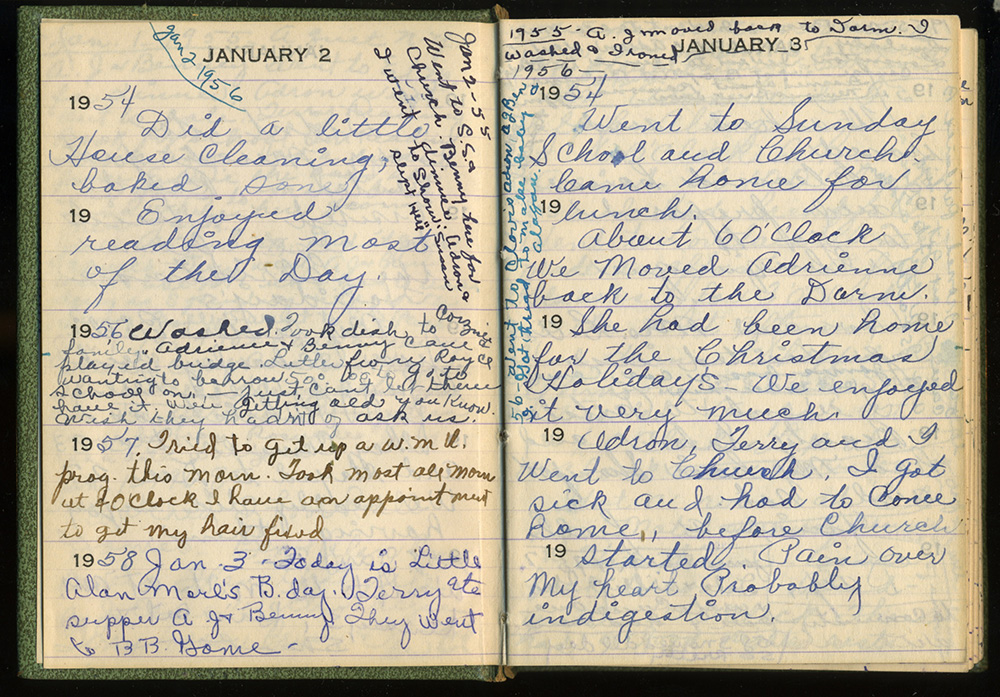 Jan 2 1956
JANUARY 2
Jan 2-55
Went to S.S. &
Church. Benny here for
dinner. Adron &
I went to Show. Susan
slept well
1954
Did a little
House Cleaning,
baked some
19
Enjoyed
reading most
of the Day.
1956 Washed. Took dish to Cozzis
family. Adrienne & Benny came
played bridge. Little Royce
wanting to borrow to go to
school on. — just can't let them
have it. We're getting old you know.
Wish they hadn't of ask us.
1957. Tried to get up a W.M.U.
prog. this morn. Took most all morn
at 4 O Clock I have an appointment
to get my hair fixed
1958 Jan. 3 - Today is Little
Alan Merl's B.day. Terry ate
supper A J & Benny. They went
to B B. Game -
1955 - A. J moved back to Dorm. I
washed & Ironed
JANUARY 3
1956 —
56 Went to Clovis Adron AJ Ben
& I. Got thread to make baby
1954
Went to Sunday
School and Church.
Came home for
19 lunch.
About 6 O'Clock
We Moved Adrienne
back to the Dorm.
19 She had been home
for the Christmas
Holidays - We enjoyed
it very much.
19 Adron, Terry and I
Went to Church. I got
sick and had to Come
home, before Church
19 started. Pain over
My heart Probably
indigestion.